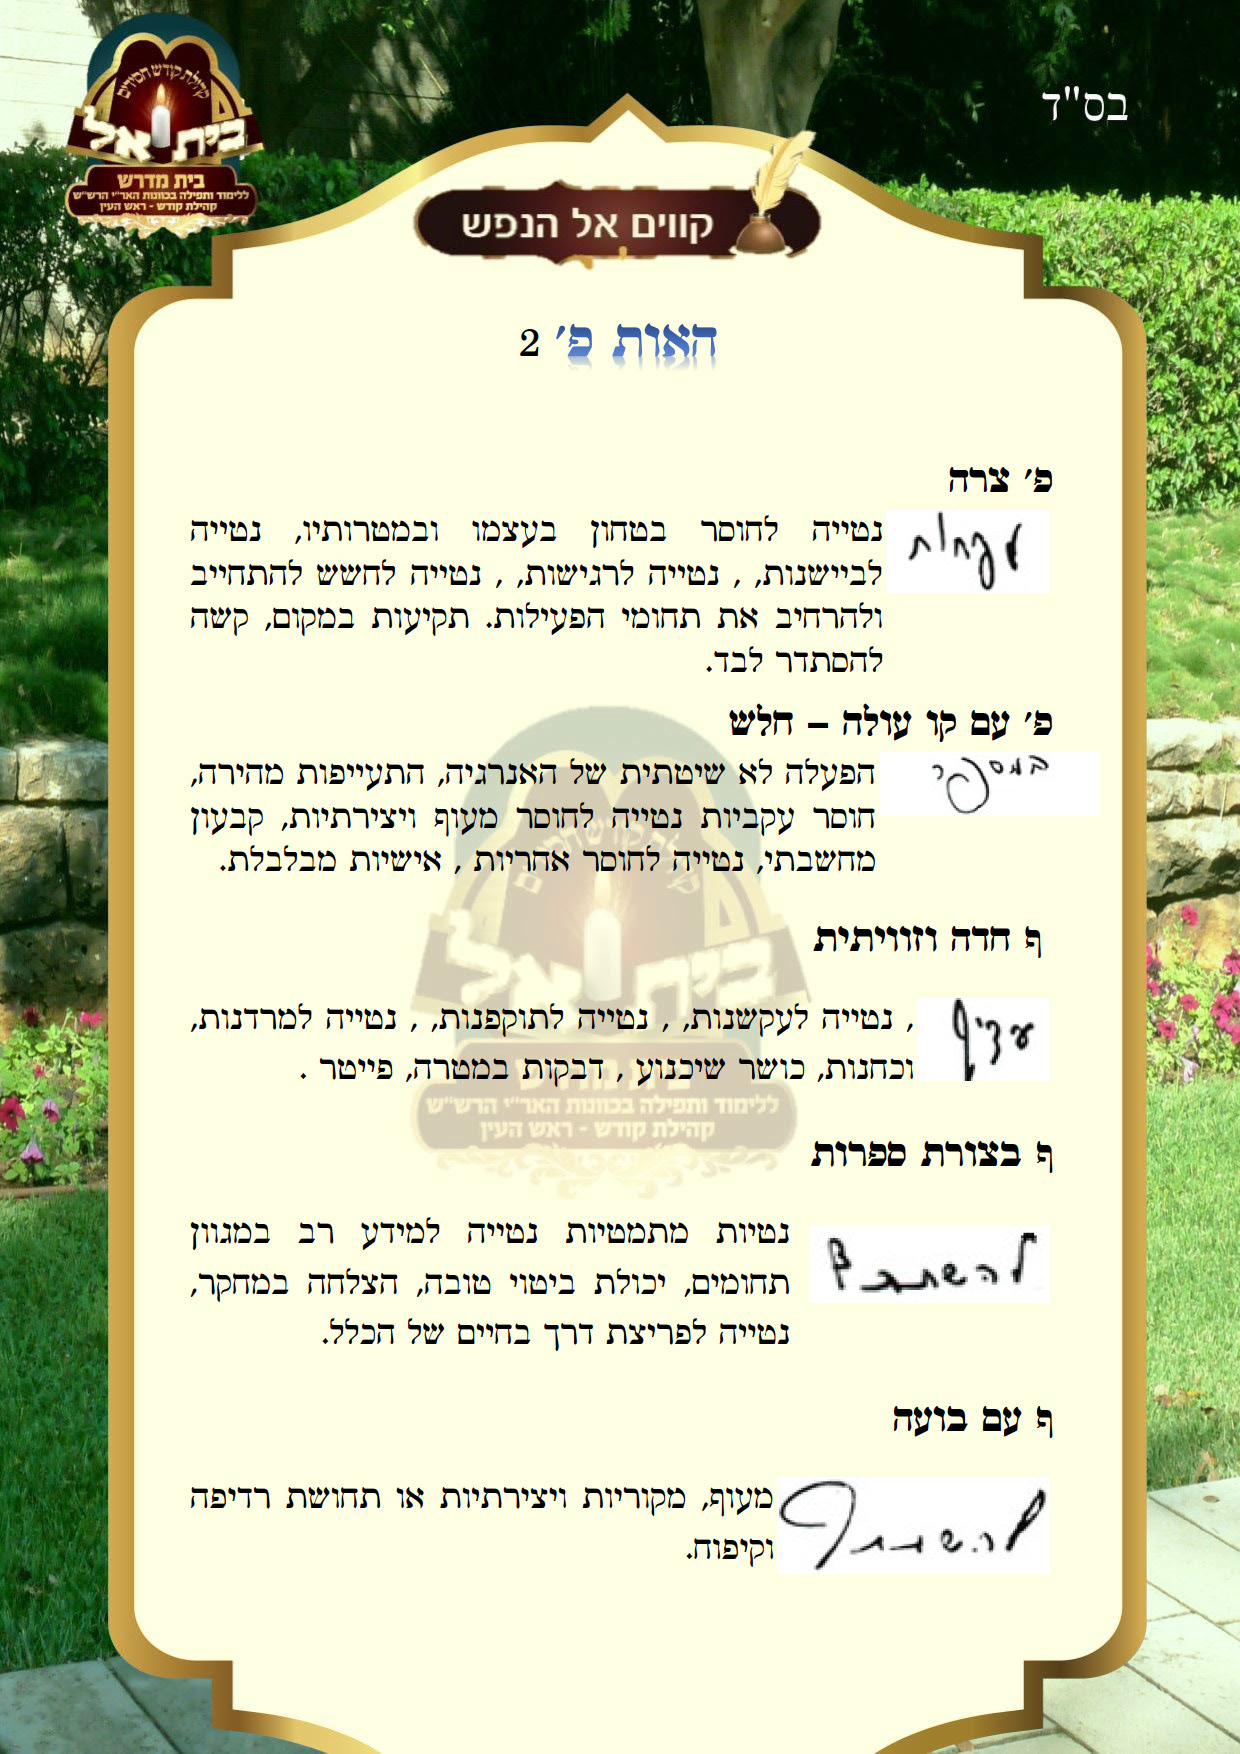 בס"ד
קהילת קודש חסידים
בית אל
בית מדרש
ללימוד ותפילה בכוונות האר"י הרש"ש
קהילת קודש - ראש העין
קווים אל הנפש
האות פ׳ 2
פ׳ צרה
לקחות
נטייה לחוסר בטחון בעצמו ובמטרותיו, נטייה
לביישנות, , נטייה לרגישות, , נטייה לחשש להתחייב
ולהרחיב את תחומי הפעילות. תקיעות במקום, קשה
להסתדר לבד.
פ׳ עם קו עולה – חלש
במספר
הפעלה לא שיטתית של האנרגיה, התעייפות מהירה,
חוסר עקביות נטייה לחוסר מעוף ויצירתיות, קבעון
מחשבתי, נטייה לחוסר אחריות , אישיות מבלבלת.
ף חדה וזוויתית
עדיף
, נטייה לעקשנות, , נטייה לתוקפנות, , נטייה למרדנות,
וכחנות, כושר שיכנוע , דבקות במטרה, פייטר .
ף בצורת ספרות
נטיות מתמטיות נטייה למידע רב במגוון
תחומים, יכולת ביטוי טובה, הצלחה במחקר,
נטייה לפריצת דרך בחיים של הכלל.
ף עם בועה
מעוף, מקוריות ויצירתיות או תחושת רדיפה
וקיפוח.
בית אל
ללימוד ותפילה בכוונות האר"י הרש"ש
קהילת קודש - ראש העין